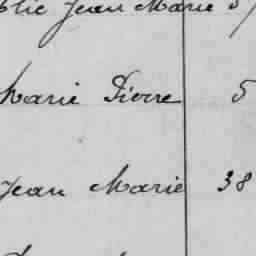 Jean Marie
Marie Pierre 5
Jean Marie 38